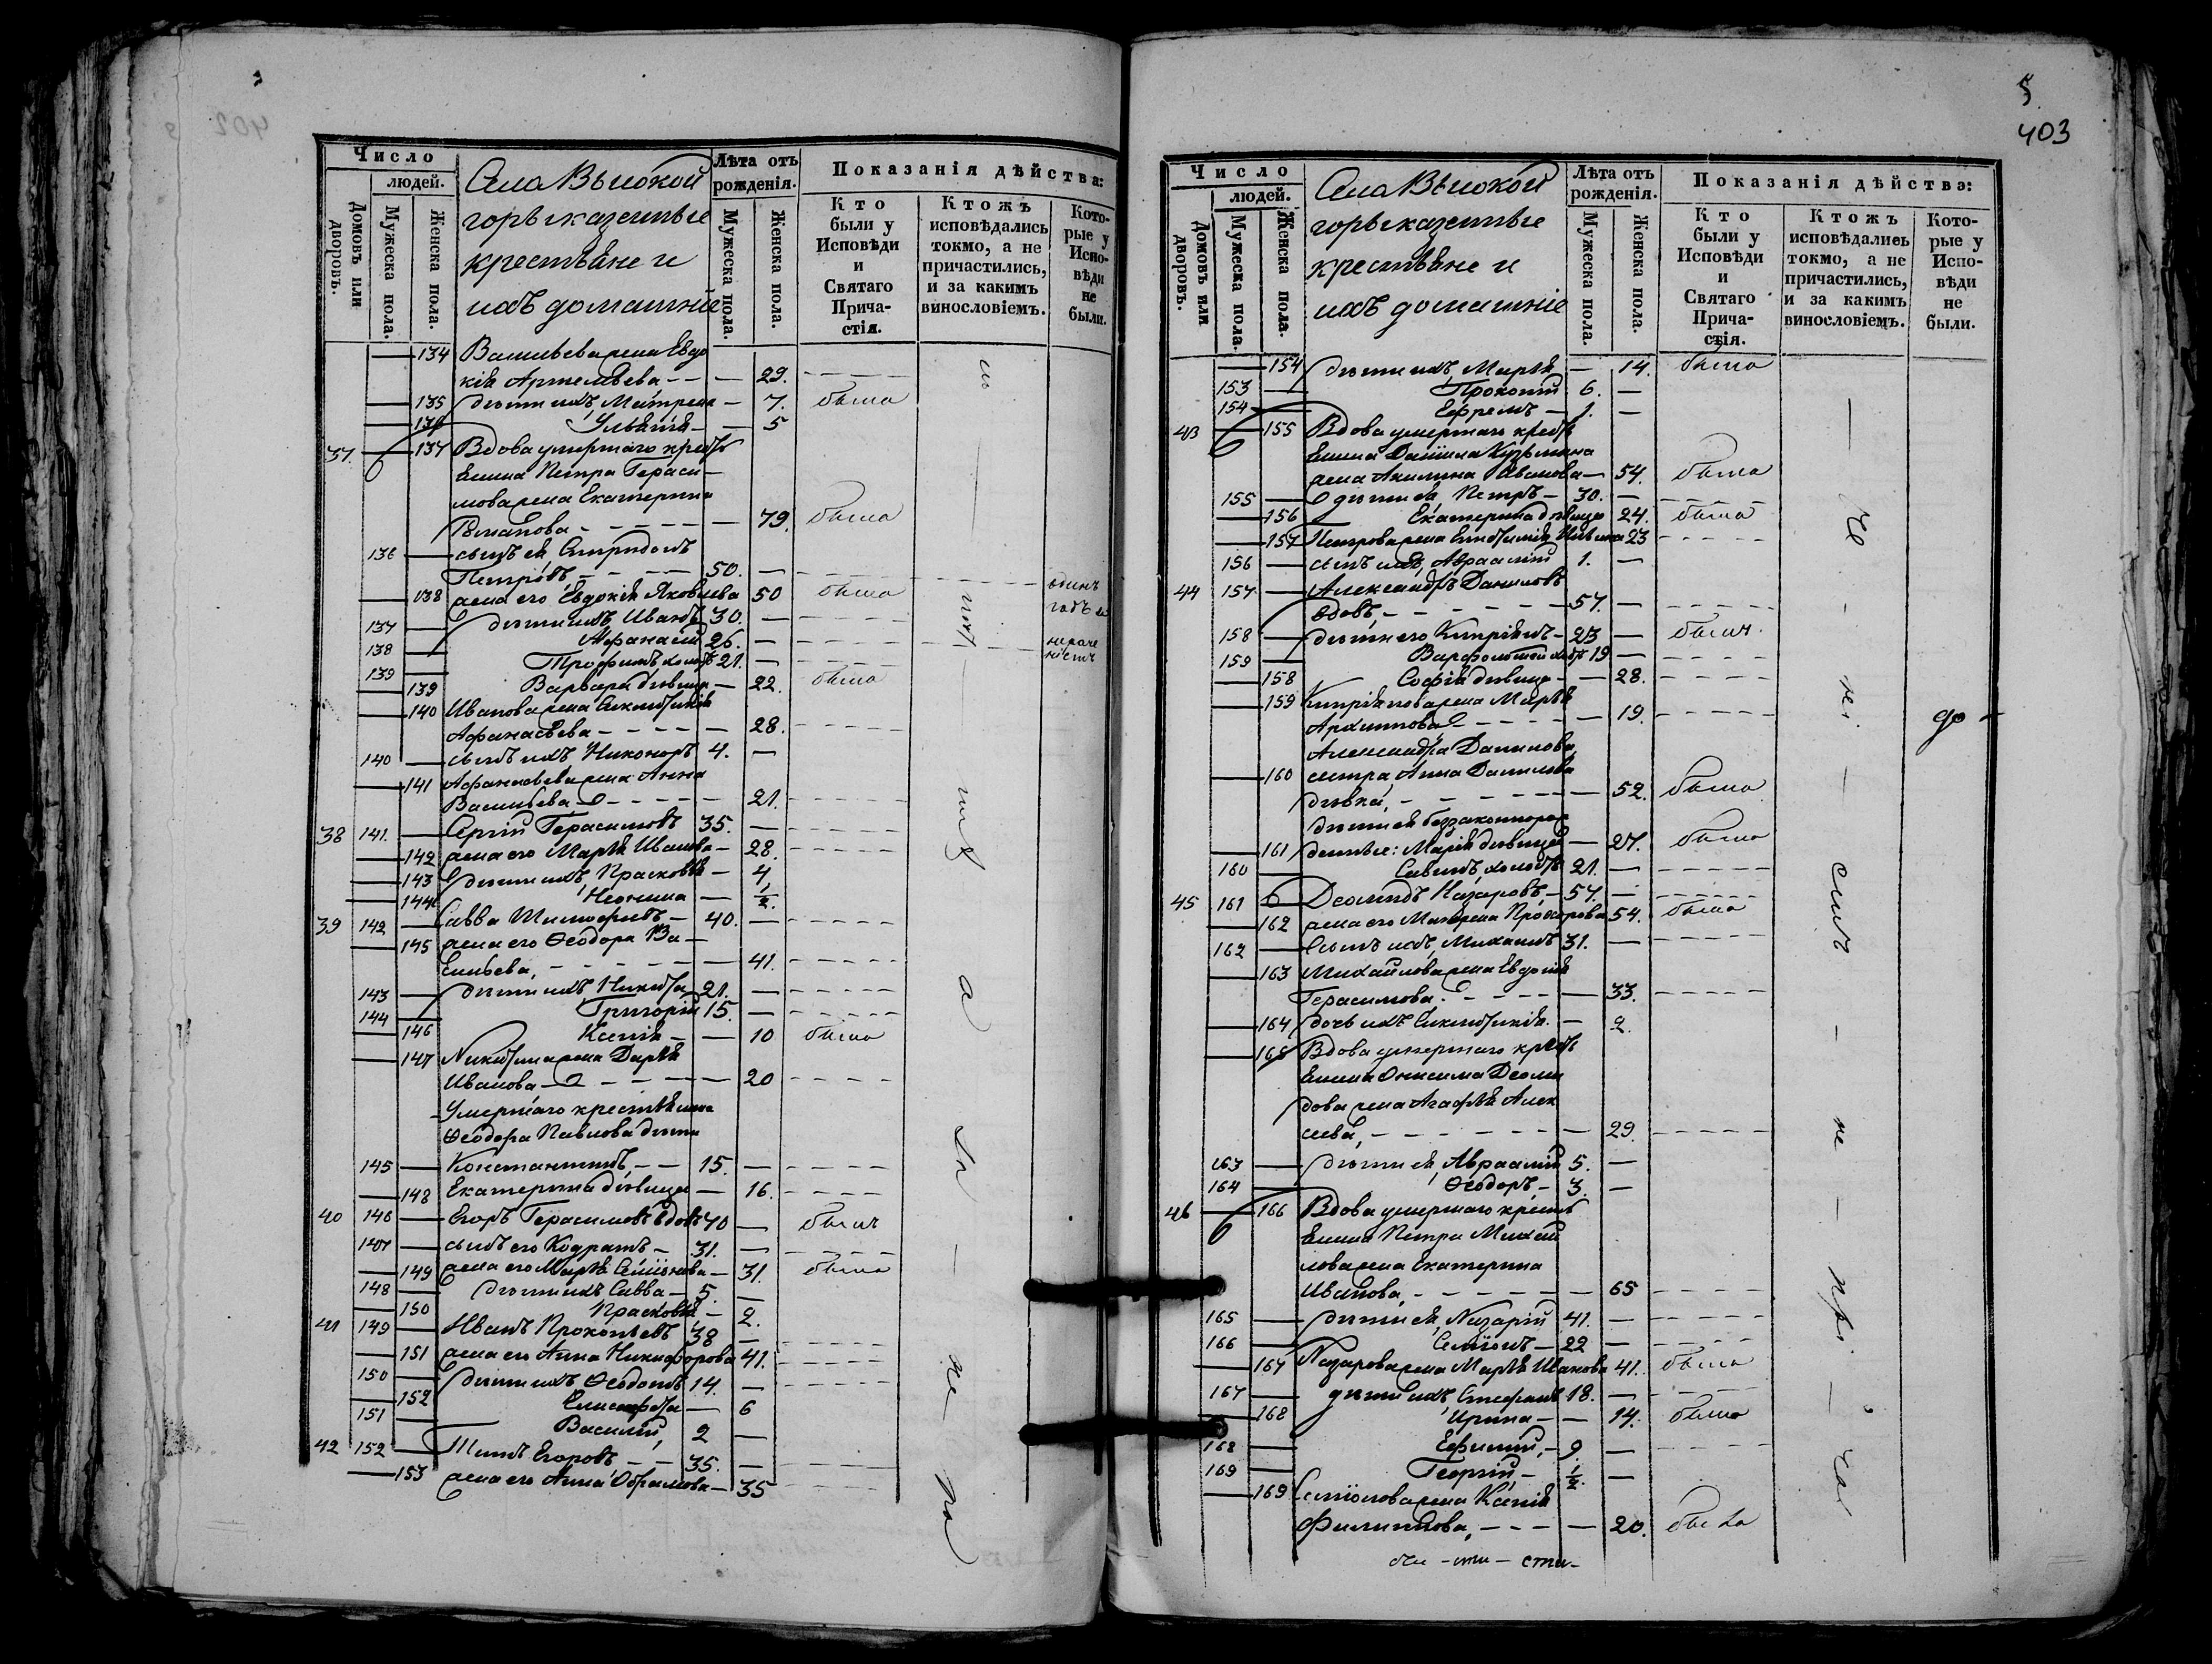 402
Число
людей.
Домовъ или дворовъ.
Мужеска пола.
Женска пола.
Села Высокой
горы казенные
крестьяне и
ихъ домашніе
Лѣта отъ
рожденія.
Мужеска пола.
Женска пола.
Показанія дѣйства:
Кто
были у
Исповѣди
и
Святаго
Прича-
стія.
Ктожъ
исповѣдались
токмо, а не
причастились,
и за какимъ
винословіемъ.
Кото-
рые у
Испо-
вѣди
не
были.
134 Васильева жена Евдо
кія Артемьева 29.
135 дѣти ихъ, Матрена 7. была
136 Ульянія 5
37. 137 Вдова умершаго крестья
Петра Гераси
мова жена Екатерина
79. была
136 сынъ ея Спиридонъ
Петровъ, 50.
138 жена его Евдокія Яковлева 50 была
137 дѣти ихъ, Иванъ 30.
138 Афанасій 26.
139 Трофимъ холостъ 21.
139 Варвара дѣвица 22. была
140 Иванова жена
Афанасьева 28.
140 сынъ ихъ, Никоноръ 4.
141 Афанасьева жена Анна
Васильева 21.
38 141. Сергій Герасимовъ 35.
142 жена его Марѳа Иванова 28.
143 дѣти ихъ, Прасковья 4
144 Неонила ½.
39 142 Савва Тимофеевъ 40.
145 жена его Ѳеодора Ва
сильева, 41.
143 дѣти ихъ Никита 21.
144 Григорій 15.
146 Ксенія 10 была
147 Никитина жена Дарья
Иванова 20
Умершаго крестьянина
Ѳеодора Павлова дѣти
145 Константинъ, 15.
148 Екатерина дѣвица 16.
40 146 Егоръ Герасимовъ вдовъ 70 былъ
147 сынъ его Кодратъ 31.
149 жена его Марѳа Семёнова 31. была
148 дѣти ихъ Савва 5.
150 Прасковья 2.
41 149 Иванъ Прокопьевъ 38
151 жена его Анна Никифорова 41.
150 дѣти ихъ Ѳеодотъ 14.
152 6
151 Василій, 2
42 152 Титъ Егоровъ 35.
153 жена его Анна Абрамова 35
403
Число
людей.
Домовъ или дворовъ.
Мужеска пола.
Женска пола.
Села Высокой
горы казенные
крестьяне и
ихъ домашніе
Лѣта отъ
рожденія.
Мужеска пола.
Женска пола.
Показанія дѣйства:
Кто
были у
Исповѣди
и
Святаго
Прича-
стія.
Ктожъ
исповѣдались
токмо, а не
причастились,
и за какимъ
винословіемъ.
Кото-
рые у
Испо-
вѣди
не
были.
154 дѣти ихъ, Марѳа 14. была
153 Прокопій 6.
154 Ефремъ 1.
43 155 Вдова умершаго крестья
Даніила Кузьмина
жена Акилина Иванова 54. была
155 дѣти ея, Петръ 30.
156 Екатерина дѣвица 24. была
157 Петрова жена 23
156 сынъ ихъ, Авраамій 1.
44 157 Александръ Даниловъ
вдовъ, 57.
158 дѣти его Кипріанъ 23 былъ
159 Варфоломей холостъ 19
158 Софія дѣвица 28.
159 Кипріянова жена Марья
Архипова 19.
Александра Данилова
160 сестра, Анна Данилова
дѣвка, 52. была
дѣти ея беззаконнорож
161 денные: Марія дѣвица 27. была
160 Савинъ, холостъ 21.
45 161 Деомидъ Назаровъ, 57.
162 жена его Матрена Прохорова 54. была
162 сынъ ихъ, Михаилъ 31.
163 Михайлова жена Евдокія
Герасимова 33.
164 дочь ихъ 2.
165 Вдова умершаго крестья
Онисима Деоми
дова жена Агафья Алек
сеева, 29.
163 дѣти ея, Авраамій 5.
164 Ѳеодоръ, 3.
46 166 Вдова умершаго крестья
Петра Михай
лова жена Екатерина
Иванова, 65
165 дѣти ея, Назарій 41.
166 Семіонъ 22
167 Назарова жена Марья Иванова 41. была
167 дѣти ихъ, Стефанъ 18.
168 Ирина 14. была
168 Ефимій, 9.
169 Георгій, ½.
169 Семіонова жена Ксенія
Филиппова, 20. была